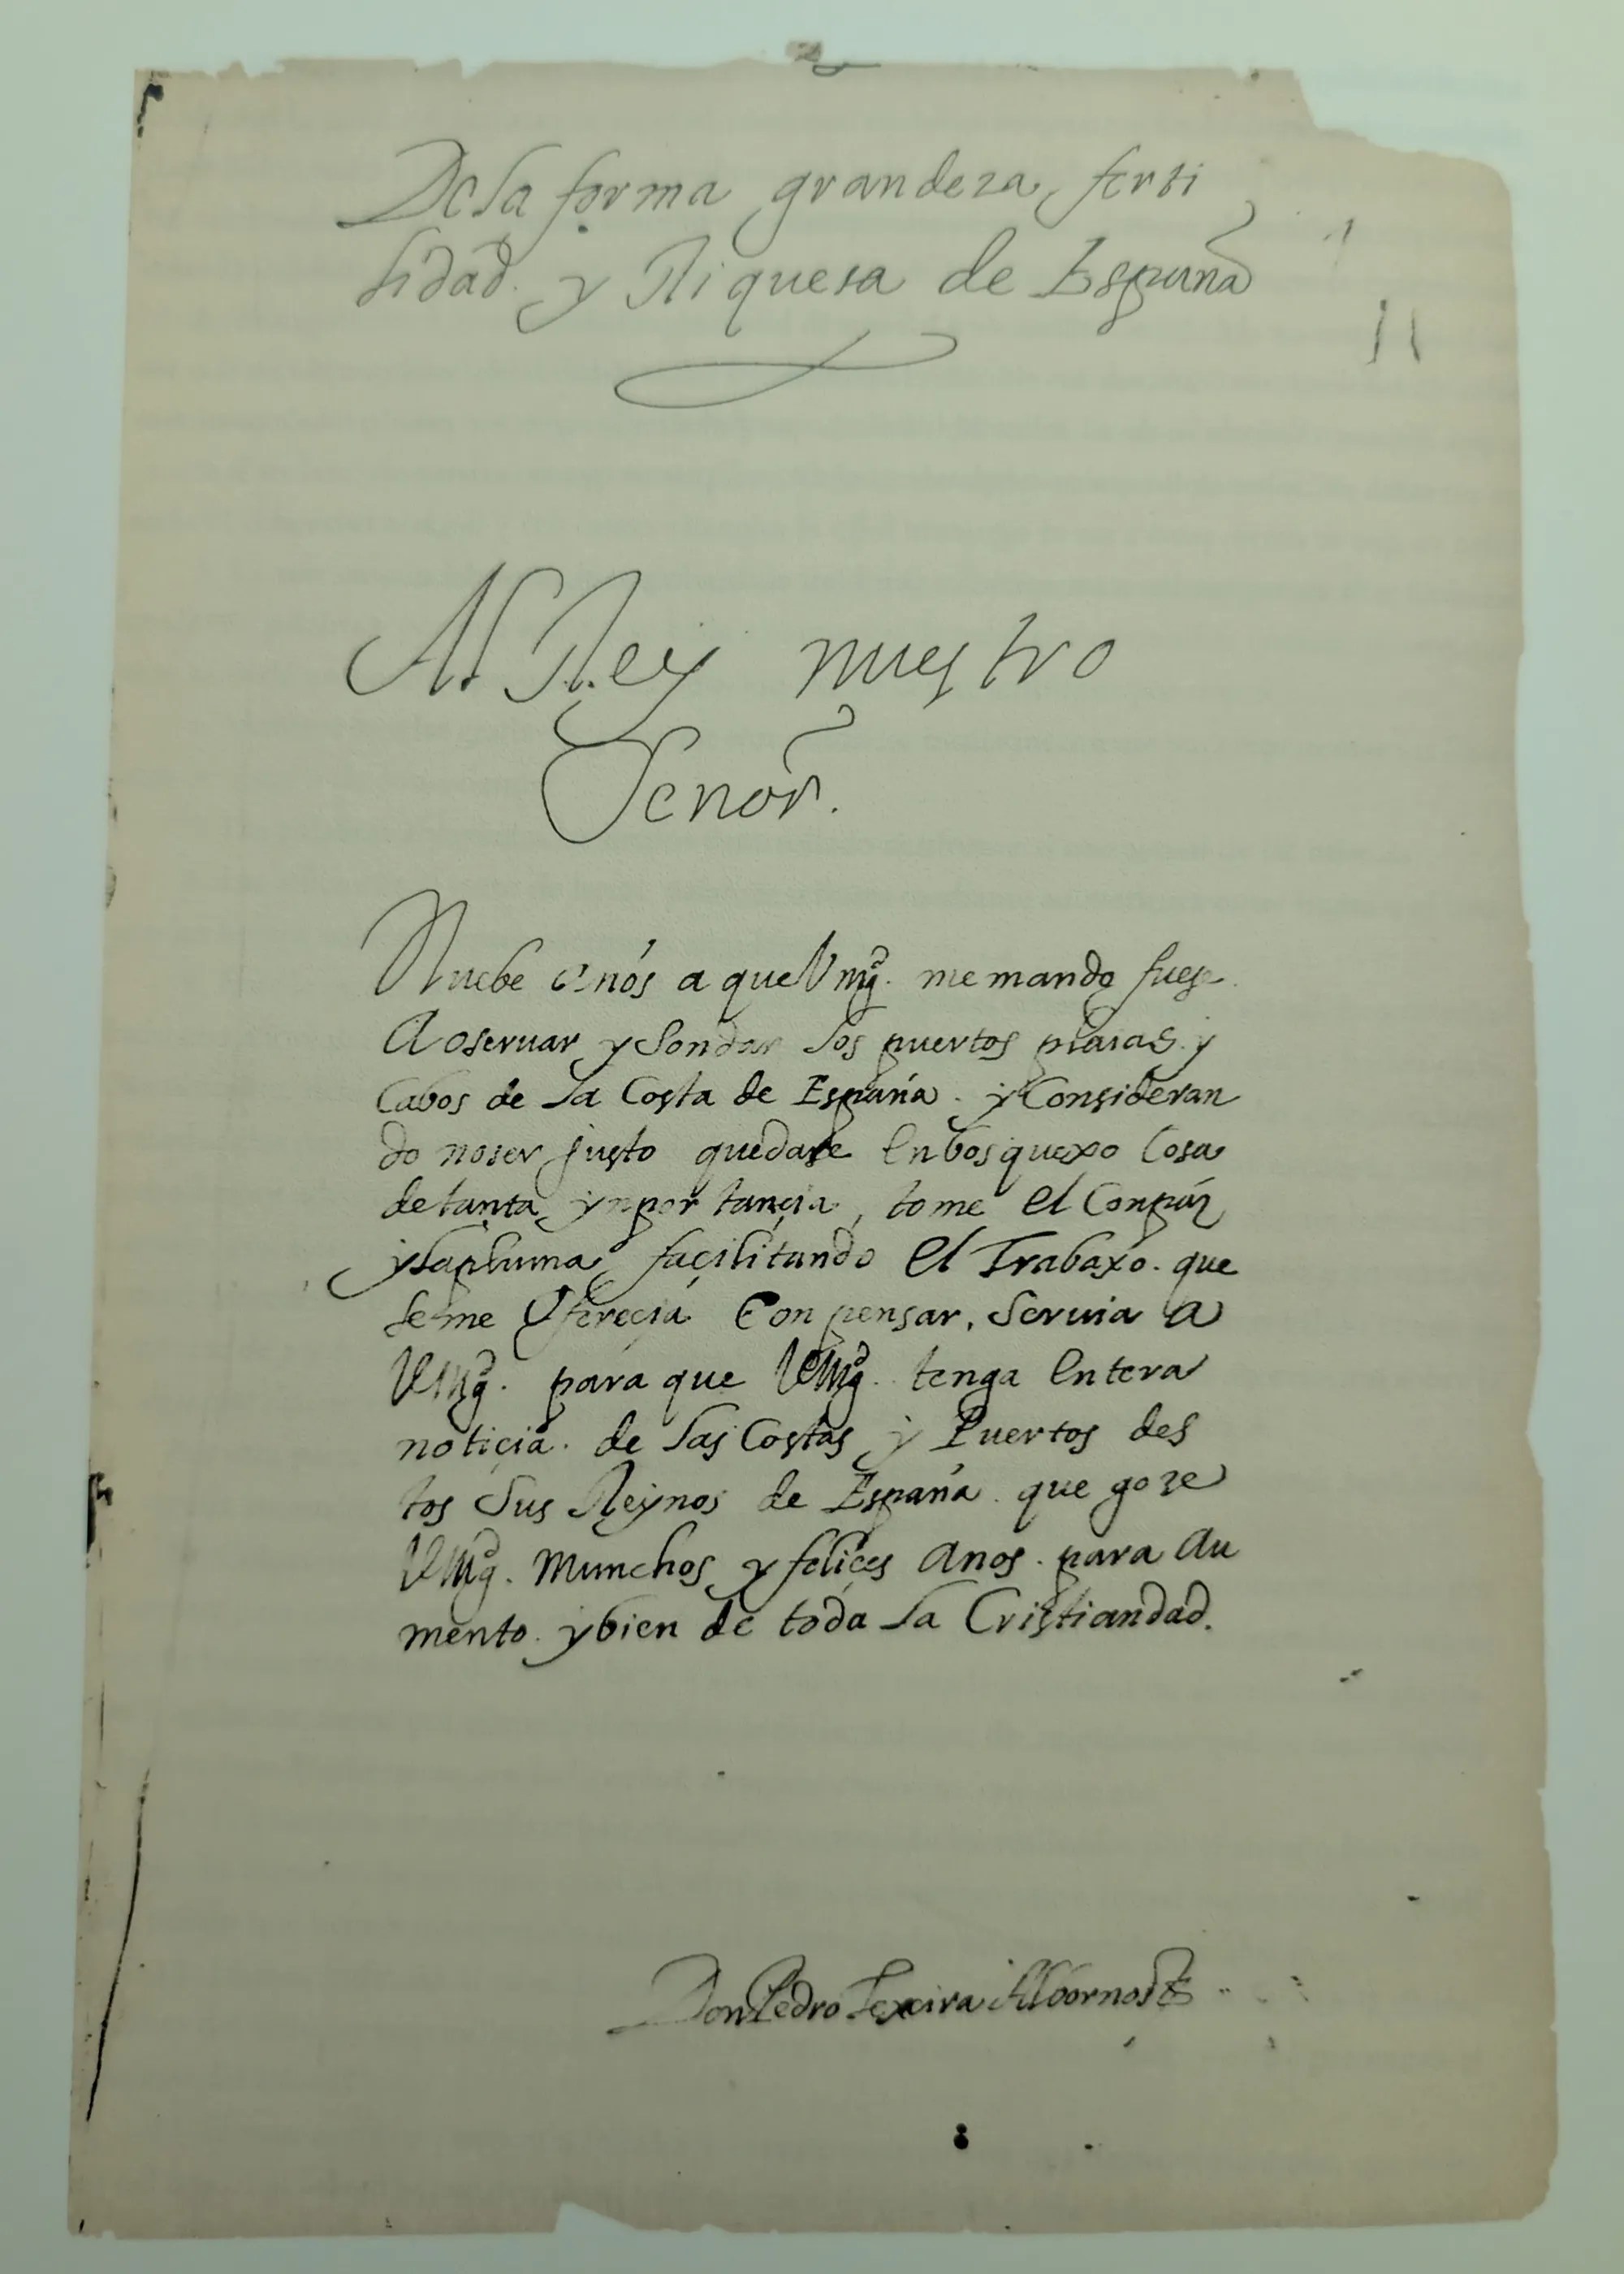 De la forma grandeza, ferti
lidad. y Riquesa de España
Al Rey nuestro
Señor.
Nuebe años a que V mgd. me mando fuese
A oseruar y Sondar los puertos plaias y
Cabos de la Costa de España. y Consideran
do no ser justo quedase en bosquexo Cosa
de tanta ynportançia, tome el Conpás
y la pluma façilitando el Trabaxo. que
se me Ofereçia Con pensar, Seruia a
VMgd. para que VMgd. tenga entera
notiçia. de las Costas y Puertos des
tos Sus Reynos de España. que goze
VMgd. Munchos y feliçes Años. para Au
mento. y bien de toda la Cristiandad.
Don Pedro Texeira Albornos